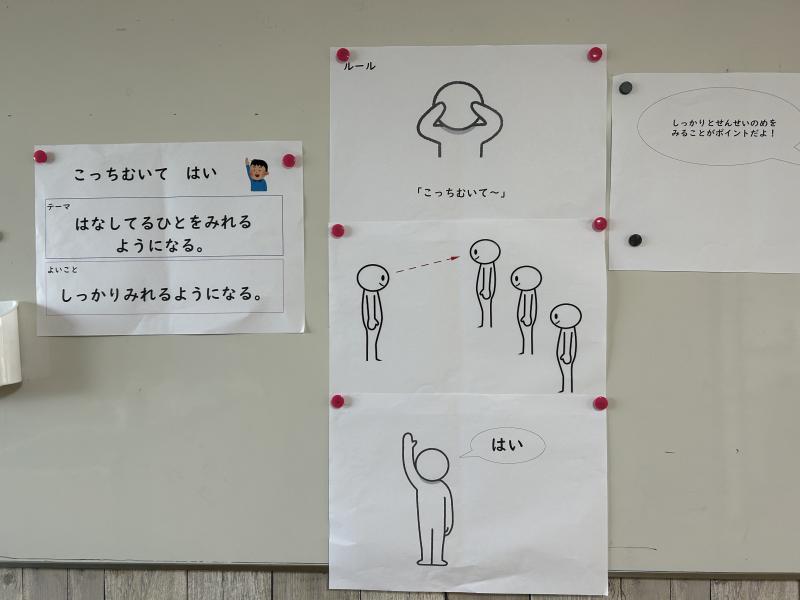 こっちむいて　はい
テーマ
はなしてるひとをみれる
ようになる。
よいこと
しっかりみれるようになる。
ルール
「こっちむいて～」
はい
しっかりとせんせいのめを
みることがポイントだよ！